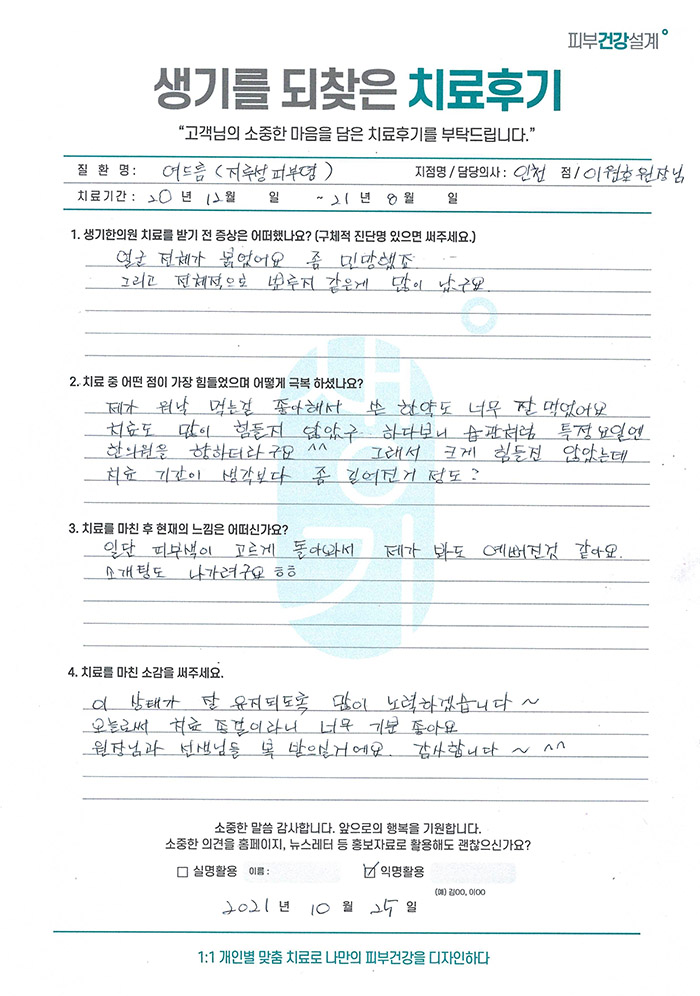 피부건강설계
생기를 되찾은 치료후기
“고객님의 소중한 마음을 담은 치료후기를 부탁드립니다.”
질 환 명 : 여드름 (지루성피부염) 지점명 / 담당의사 : 인천 점 / 이원호 원장님
치료기간 : 20 년 12월 일 ~ 21 년 8 월 일
1. 생기한의원 치료를 받기 전 증상은 어떠했나요? (구체적 진단명 있으면 써주세요.)
얼굴 전체가 붉었어요 좀 민망했죠
그리고 전체적으로 뾰루지 같은게 많이 났구요.
2. 치료 중 어떤 점이 가장 힘들었으며 어떻게 극복 하셨나요?
제가 워낙 먹는걸 좋아해서 쓴 한약도 너무 잘 먹었어요
치료도 많이 힘들지 않았구 하다보니 습관처럼 특정요일엔
한의원을 향하더라구요 ^^ 그래서 크게 힘들진 않았는데
치료 기간이 생각보다 좀 길어진거 정도?
3. 치료를 마친 후 현재의 느낌은 어떠신가요?
일단 피부색이 고르게 돌아와서 제가 봐도 예뻐진것 같아요.
소개팅도 나가려구요 ㅎㅎ
생기
4. 치료를 마친 소감을 써주세요.
이 상태가 잘 유지되도록 많이 노력하겠습니다 ~
오늘로써 치료 종결이라니 너무 기분 좋아요
원장님과 선생님들 복 받으실거에요. 감사합니다 ~ ^^
소중한 말씀 감사합니다. 앞으로의 행복을 기원합니다.
소중한 의견을 홈페이지, 뉴스레터 등 홍보자료로 활용해도 괜찮으신가요?
실명활용 이름 : 익명활용
(예) 김OO, 이OO
2021 년 10 월 25 일
1:1 개인별 맞춤 치료로 나만의 피부건강을 디자인하다